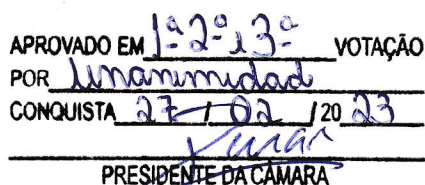 APROVADO EM 1ª 2ª e 3ª VOTAÇÃO
POR Unanimidad
CONQUISTA 27 / 02 / 20 23
PRESIDENTE DA CÂMARA